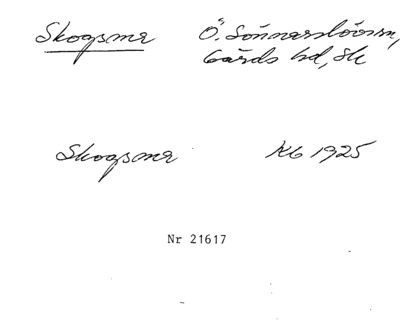 Skogsmr Ö. Sönnarslövsm,
Gärds hd, Sk
Skogsmr Kb 1925
Nr 21617